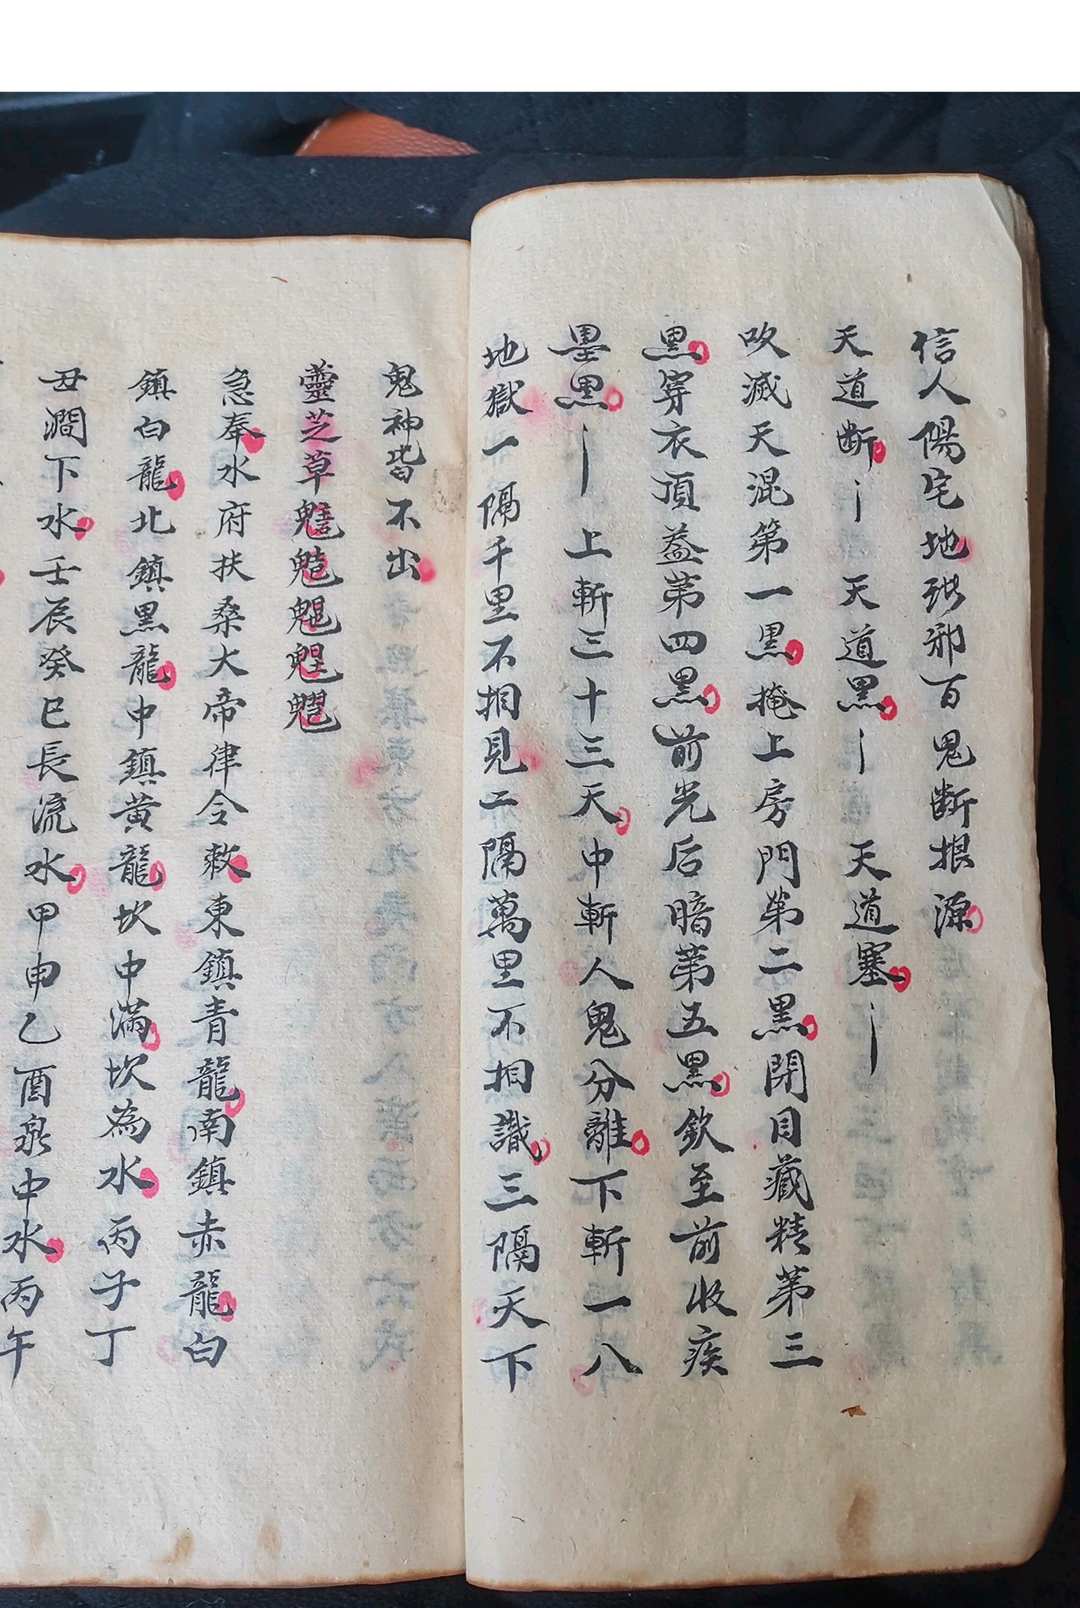 信人陽宅地張邪百鬼断根源
天道断丨天道黑丨天道塞丨
吹滅天混第一黑掩上房門第二黑閉目藏精第三
黑穿衣頂蓋第四黑前光后暗第五黑欽至前收疾
墨黑丨上斬三十三天中斬人鬼分離下斬一八
地獄一隔千里不相見二隔萬里不相識三隔天下
鬼神皆不出
靈芝草
急奉水府扶桑大帝律令敕東鎮青龍南鎮赤龍白
鎮白龍北鎮黑龍中鎮黃龍坎中滿坎為水丙子丁
丑澗下水壬辰癸巳長流水甲申乙酉泉中水丙午